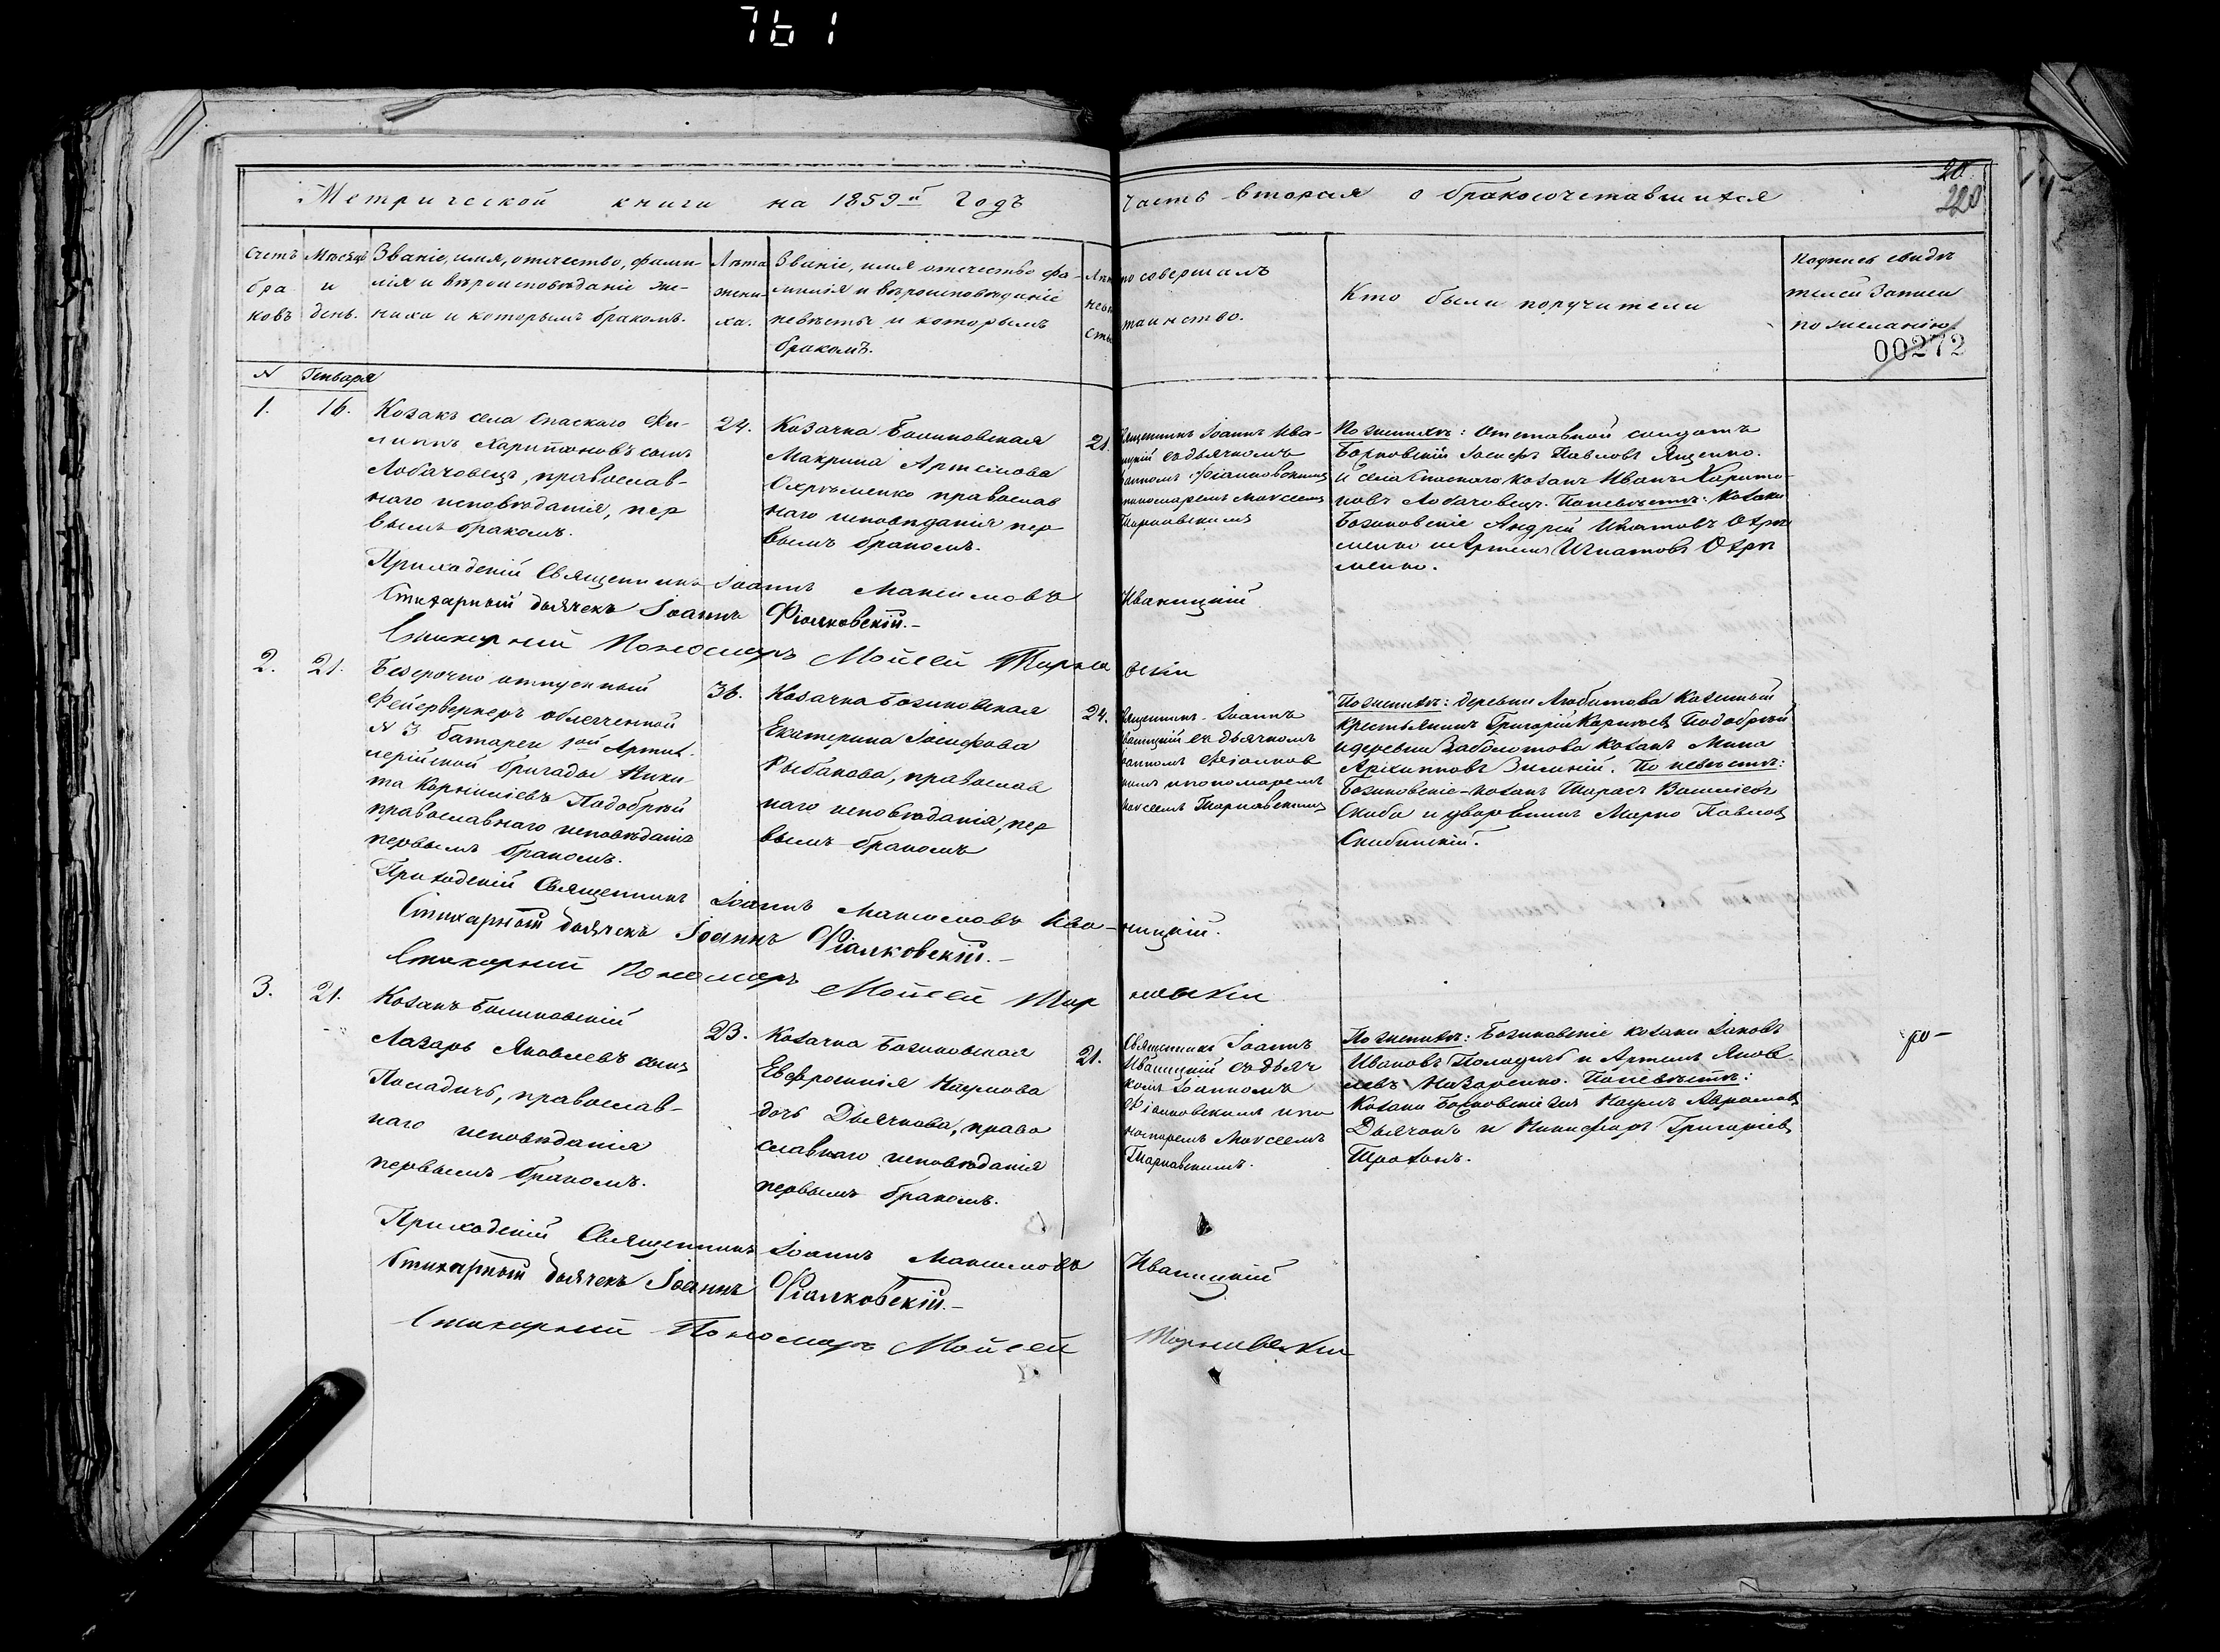 761
Метрической книги на 1859й Годъ
часть вторая о бракосочетавшихся
20
220
Счетъ браковъ
Мѣсяцъ и день.
Званіе, имя, отчество, фами-
лія и вѣроисповѣданіе же-
ниха и которымъ бракомъ.
Лѣта
жени-
ха.
Званіе, имя отчество фа-
милія и вѣроисповѣданіе
невѣсты и которымъ
бракомъ.
по совершалъ
таинство.
Кто были поручители
Подпись свидѣ
телей записи
по желанію
00272
N Генваря
1. 16.
Козакъ села Спаского Фи-
липпъ Харитоновъ сынъ
Лобачовецъ, православ-
наго исповѣданія, пер
вымъ бракомъ.
24.
Козачка
Макрина Артемова
Охрѣменко православ
наго исповѣданія пер
вымъ бракомъ.
21.
Іоаннъ Ива-
ницкій съ дьячкомъ
Фіалковскимъ
пономаремъ Моисеемъ
Тарновскимъ
По женихѣ: Отставной солдатъ
Іосифъ Павловъ Ященко.
и села Спаского козакъ Иванъ Харито-
новъ Лобачовецъ. По невѣстѣ: козаки
Андрей Игнатовъ Охрѣ
менко и Артемъ Игнатовъ Охрѣ
менко.
Приходскій Священникъ Іоаннъ Максимовъ Иваницкій
Стихарный дьячекъ Іоаннъ Фіалковскій.-
Стихарный Пономарь Мойсей Тарновскій
2. 21.
Безсрочно отпускный
Фейерверкеръ облегченной
N 3 батареи ой Артил-
лерійской бригады Ники-
та Корниліевъ Подобрій
православнаго исповѣданія
первымъ бракомъ.
36.
Козачка
Екатерина Іосифова
Рыбакова, православ
наго исповѣданія, пер
вымъ бракомъ
24.
Іоаннъ
Иваницкій съ дьячкомъ
Іоанномъ Фіалков
скимъ и пономаремъ
Моисеемъ Тарновскимъ
По женихѣ: деревни Любитова Казенный
крестьянинъ Григорій Подобрій
и деревни Заболотова козакъ Мина
Архипповъ Зимній. По невѣстѣ:
козакъ Тарасъ Василіевъ
Скиба и дворянинъ Марко Павловъ
Скибинскій.
Приходскій Священникъ Іоаннъ Максимовъ Ива-ницкій.
Стихарный дьячекъ Іоаннъ Фіалковскій.-
Стихарный Пономарь Мойсей Тарновскій
3. 21.
Козакъ
Лазарь Яковлевъ сынъ
православ-
наго исповѣданія
первымъ бракомъ.
23.
Козачка
Евфросинія Наумова
дочь Дьячкова, право
славнаго исповѣданія
первымъ бракомъ.
21.
Священникъ Іоаннъ
Иваницкій съ дьяч
комъ Іоанномъ
Фіалковскимъ и по
номаремъ Моисеемъ
Тарновскимъ.
По женихѣ: козаки Іаковъ
Ивановъ и Артемъ Яков
левъ Назаренко. По невѣстѣ:
Козаки Наумъ
Дьячокъ и Никифоръ Григоріевъ
Трохонъ.
Приходскій Священникъ Іоаннъ Максимовъ Иваницкій
Стихарный дьячекъ Іоаннъ Фіалковскій.-
Стихарный Пономарь Мойсей Тарновскій